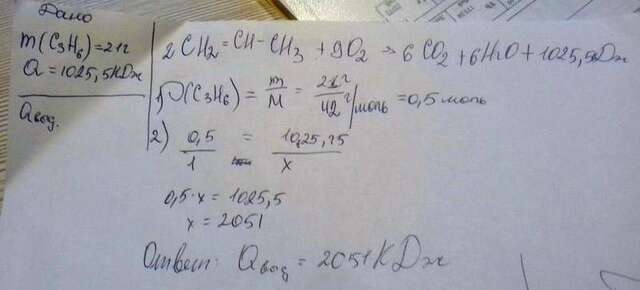 Дано
m(C3H6)=21г
Q=1025,5КДж
Qвод.
2CH2=CH-CH3 +9O2 → 6CO2+6H2O+1025,5Дж
1) ν(C3H6) = m/M = 21г/42г/моль =0,5 моль
2) 0,5/1 = 10,25,75/x
0,5·x = 1025,5
x = 2051
Ответ: Qвод = 2051КДж